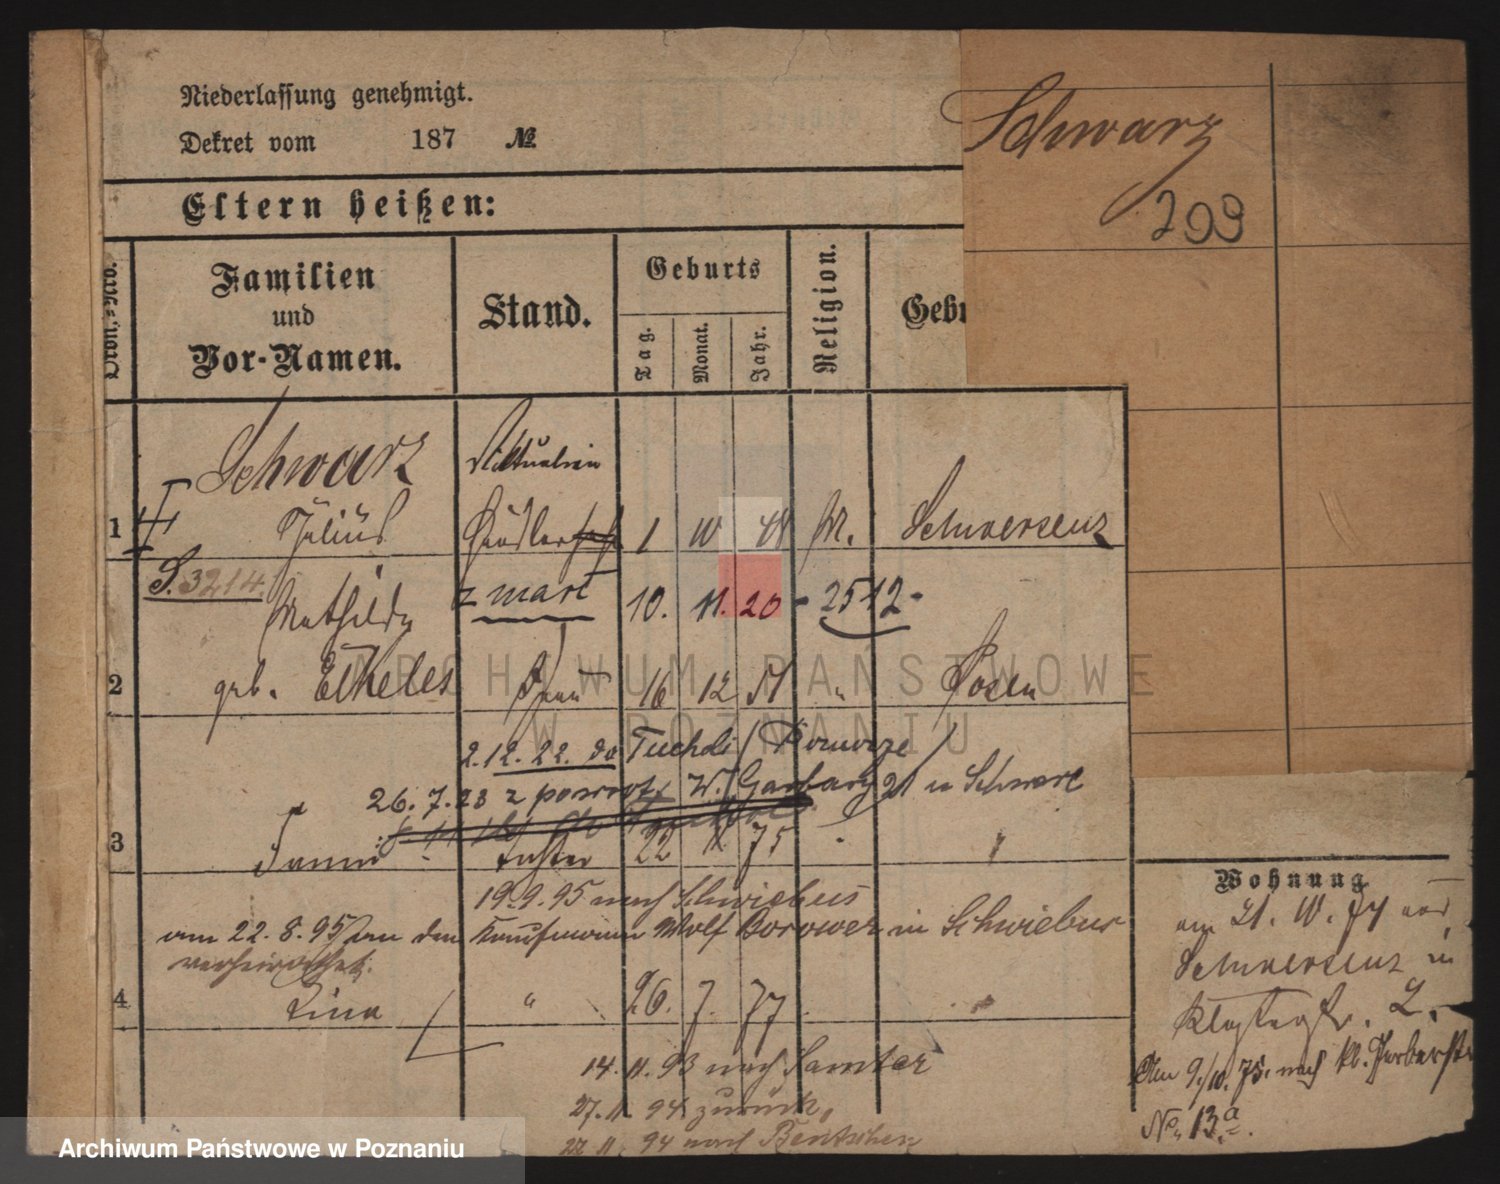 Niederlassung genehmigt.
Dekret vom 187 №
Schwarz
209
Eltern heißen:
Familien
und
Vor-Namen.
Stand.
Geburts
Tag.
Monat.
Jahr.
Religion.
Gebu
Schwarz
1 Julius Händler 1 10 48 M. Schwersenz
S. 3214.
Mathilde z marł 10. 11. 20 - 2512 -
2 geb. Elkeles Frau 16 12 51 " Posen
2.12.22. do Tuchli / Pomorze /
26.7.23 z powrotem W. Garbary 21 u Schwarz
3 Tochter 22 75 "
19.9.95 nach Schwiebus
am 22.8.95 an den Kaufmann Wolf Borower in Schwiebus
verheirathet.
4 Lina " 26. 7. 77 "
14.11.93 nach Samter
27.11.94 zurück,
27.11.94 nach Bentschen
Wohnung
am 21. 10. 74 aus
Schwersenz in
Klosterstr. 2.
Am 9./10. 75. nach kl. Gerberstr
No. 13.a
ARCHIWUM PAŃSTWOWE
W POZNANIU
Archiwum Państwowe w Poznaniu